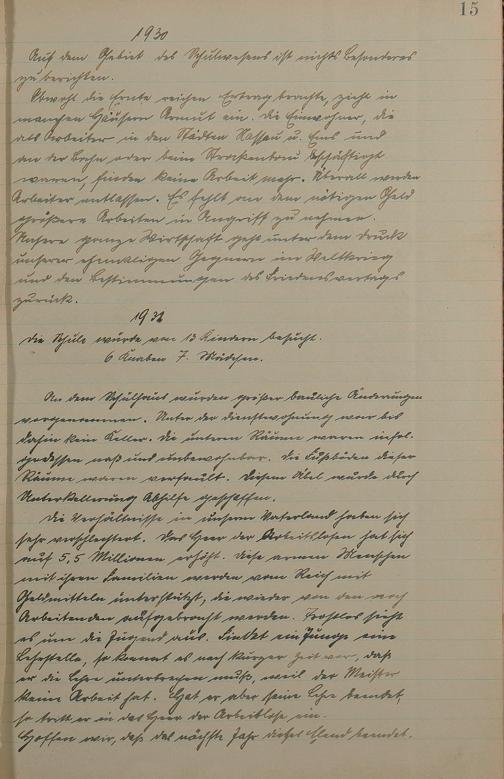 15
1930
Auf dem Gebiet des Schulwesens ist nichts besonderes
zu berichten.
Obwohl die Ernte reichen Ertrag brachte, zieht in
manchen Häusern Armut ein. Die Einwohner, die
als Arbeiter in den Städten Nassau u. Ems und
an der Bahn oder beim Streckenbau beschäftigt
waren, finden keine Arbeit mehr. Überall werden
Arbeiter entlassen. Es fehlt an dem nötigen Geld
größere Arbeiten in Angriff zu nehmen.
Unsere ganze Wirtschaft geht unter dem Druck
unserer ehemaligen Gegnern im Weltkrieg
und den Bestimmungen des Friedensvertags
zurück.
Die Schule wurde von 13 Kindern besucht.
6 Knaben 7. Mädchen.
An dem Schulhaus wurden größer bauliche Änderungen
vorgenommen. Unter der Dienstwohnung war bis
dahin kein Keller. Die unteren Räume waren infol-
gedessen naß und unbewohnbar. Die Fußböden dieser
Räume waren verfault. Diesem Übel wurde durch
Unterkellerung Abhilfe geschaffen.
Die Verhältnisse in unserm Vaterland haben sich
sehr verschlechtert. Das Heer der Arbeitslosen hat sich
auf 5,5 Millionen erhöht. Diese armen Menschen
mit ihren Familien werden vom Reich mit
Geldmitteln unterstützt, die wieder von den noch
Arbeitenden aufgebracht werden. Trostlos sieht
es um die Jugend aus. Findet ein Junge eine
Lehrstelle, so kommt es nach kurzer Zeit vor, daß
er die Lehre unterbrechen muß, weil der Meister
keine Arbeit hat. Hat er aber seine Lehre beendet,
so tritt er in das Heer der Arbeitslose ein.
Hoffen wir, daß das nächste Jahr dieses Elend beendet.